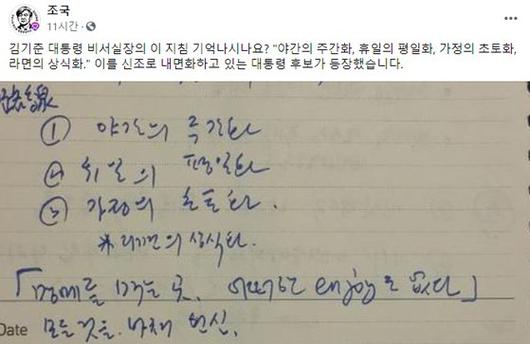 조국
11시간 ·
김기준 대통령 비서실장의 이 지침 기억나시나요? "야간의 주간화, 휴일의 평일화, 가정의 초토화,
라면의 상식화." 이를 신조로 내면화하고 있는 대통령 후보가 등장했습니다.
① 야간의 주간화
② 휴일의 평일화
③ 가정의 초토화.
* 라면의 상식화.
「명예를 먹는 곳. 어떠한 enjoy도 없다」
Date 모든 것을 바쳐 헌신.